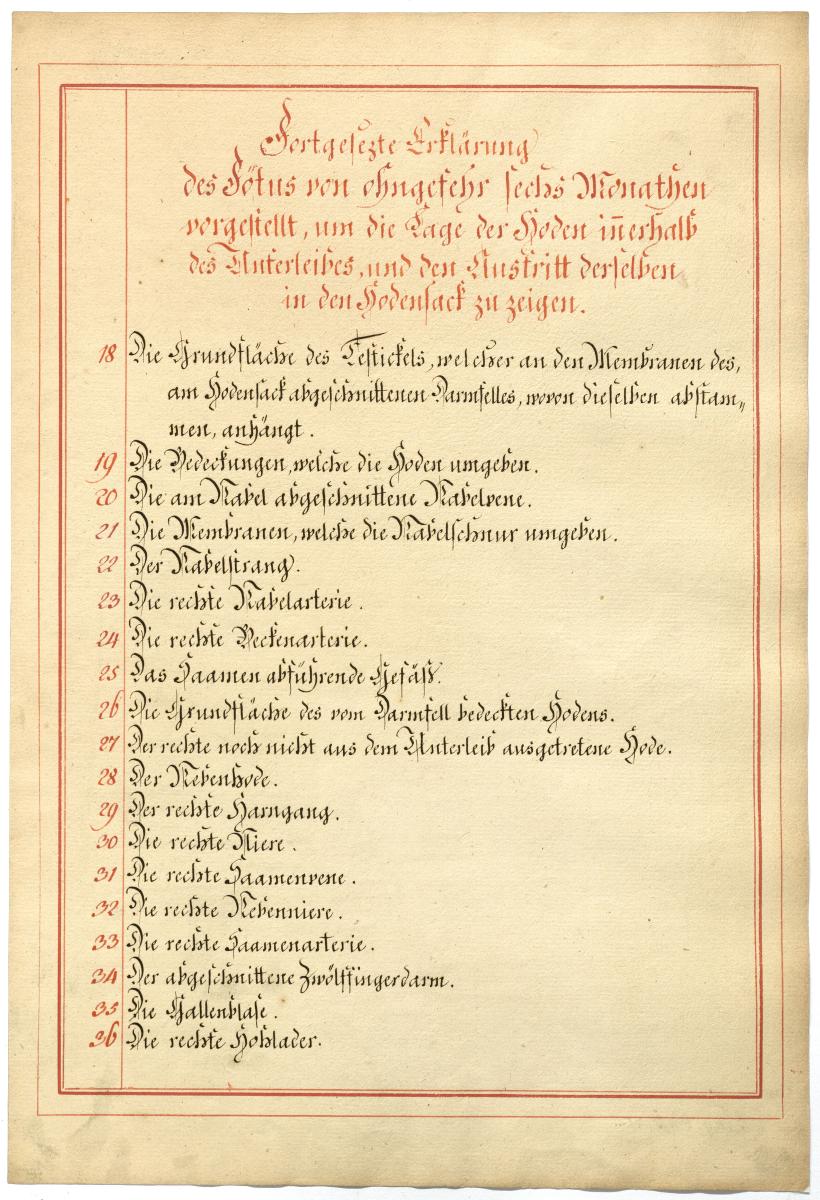 Fortgesezte Erklärung
des Fötus von ohngefehr sechs Monathen
vorgestellt, um die Lage der Hoden iñerhalb
des Unterleibes, und den Austritt derselben
in den Hodensack zu zeigen.
18 Die Grundfläche des Testickels, welcher an den Membranen des,
am Hodensack abgeschnittenen Darmfelles, wovon dieselben abstam„
men, anhängt.
19 Die Bedeckungen, welche die Hoden umgeben.
20 Die am Nabel abgeschnittene Nabelvene.
21 Die Membranen, welche die Nabelschnur umgeben.
22 Der Nabelstrang.
23 Die rechte Nabelarterie.
24 Die rechte Beckenarterie.
25 Das Saamen abführende Gefäß.
26 Die Grundfläche des vom Darmfell bedeckten Hodens.
27 Der rechte noch nicht aus dem Unterleib ausgetretene Hode.
28 Der Nebenhode.
29 Der rechte Harngang.
30 Die rechte Niere.
31 Die rechte Saamenvene.
32 Die rechte Nebenniere.
33 Die rechte Saamenarterie.
34 Der abgeschnittene Zwölffingerdarm.
35 Die Gallenblase.
36 Die rechte Hohlader.